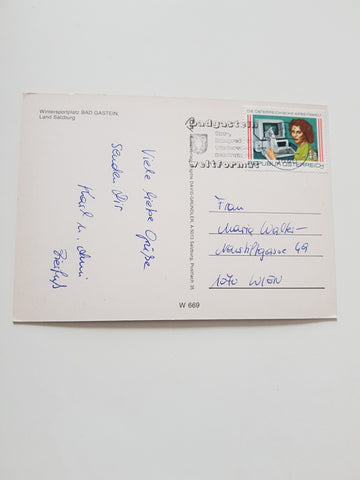 Wintersportplatz BAD GASTEIN,
Land Salzburg
Viele liebe Grüße
senden Dir
Karl u.
DIE ÖSTERREICHISCHE ARBEITSWELT
REPUBLIK ÖSTERREICH
Badgastein
weltformat
DAVID-GRÜNDLER, A-5013 Salzburg, Postfach 35
Frau
Maria
Neustiftgasse 49
1070 WIEN
W 669